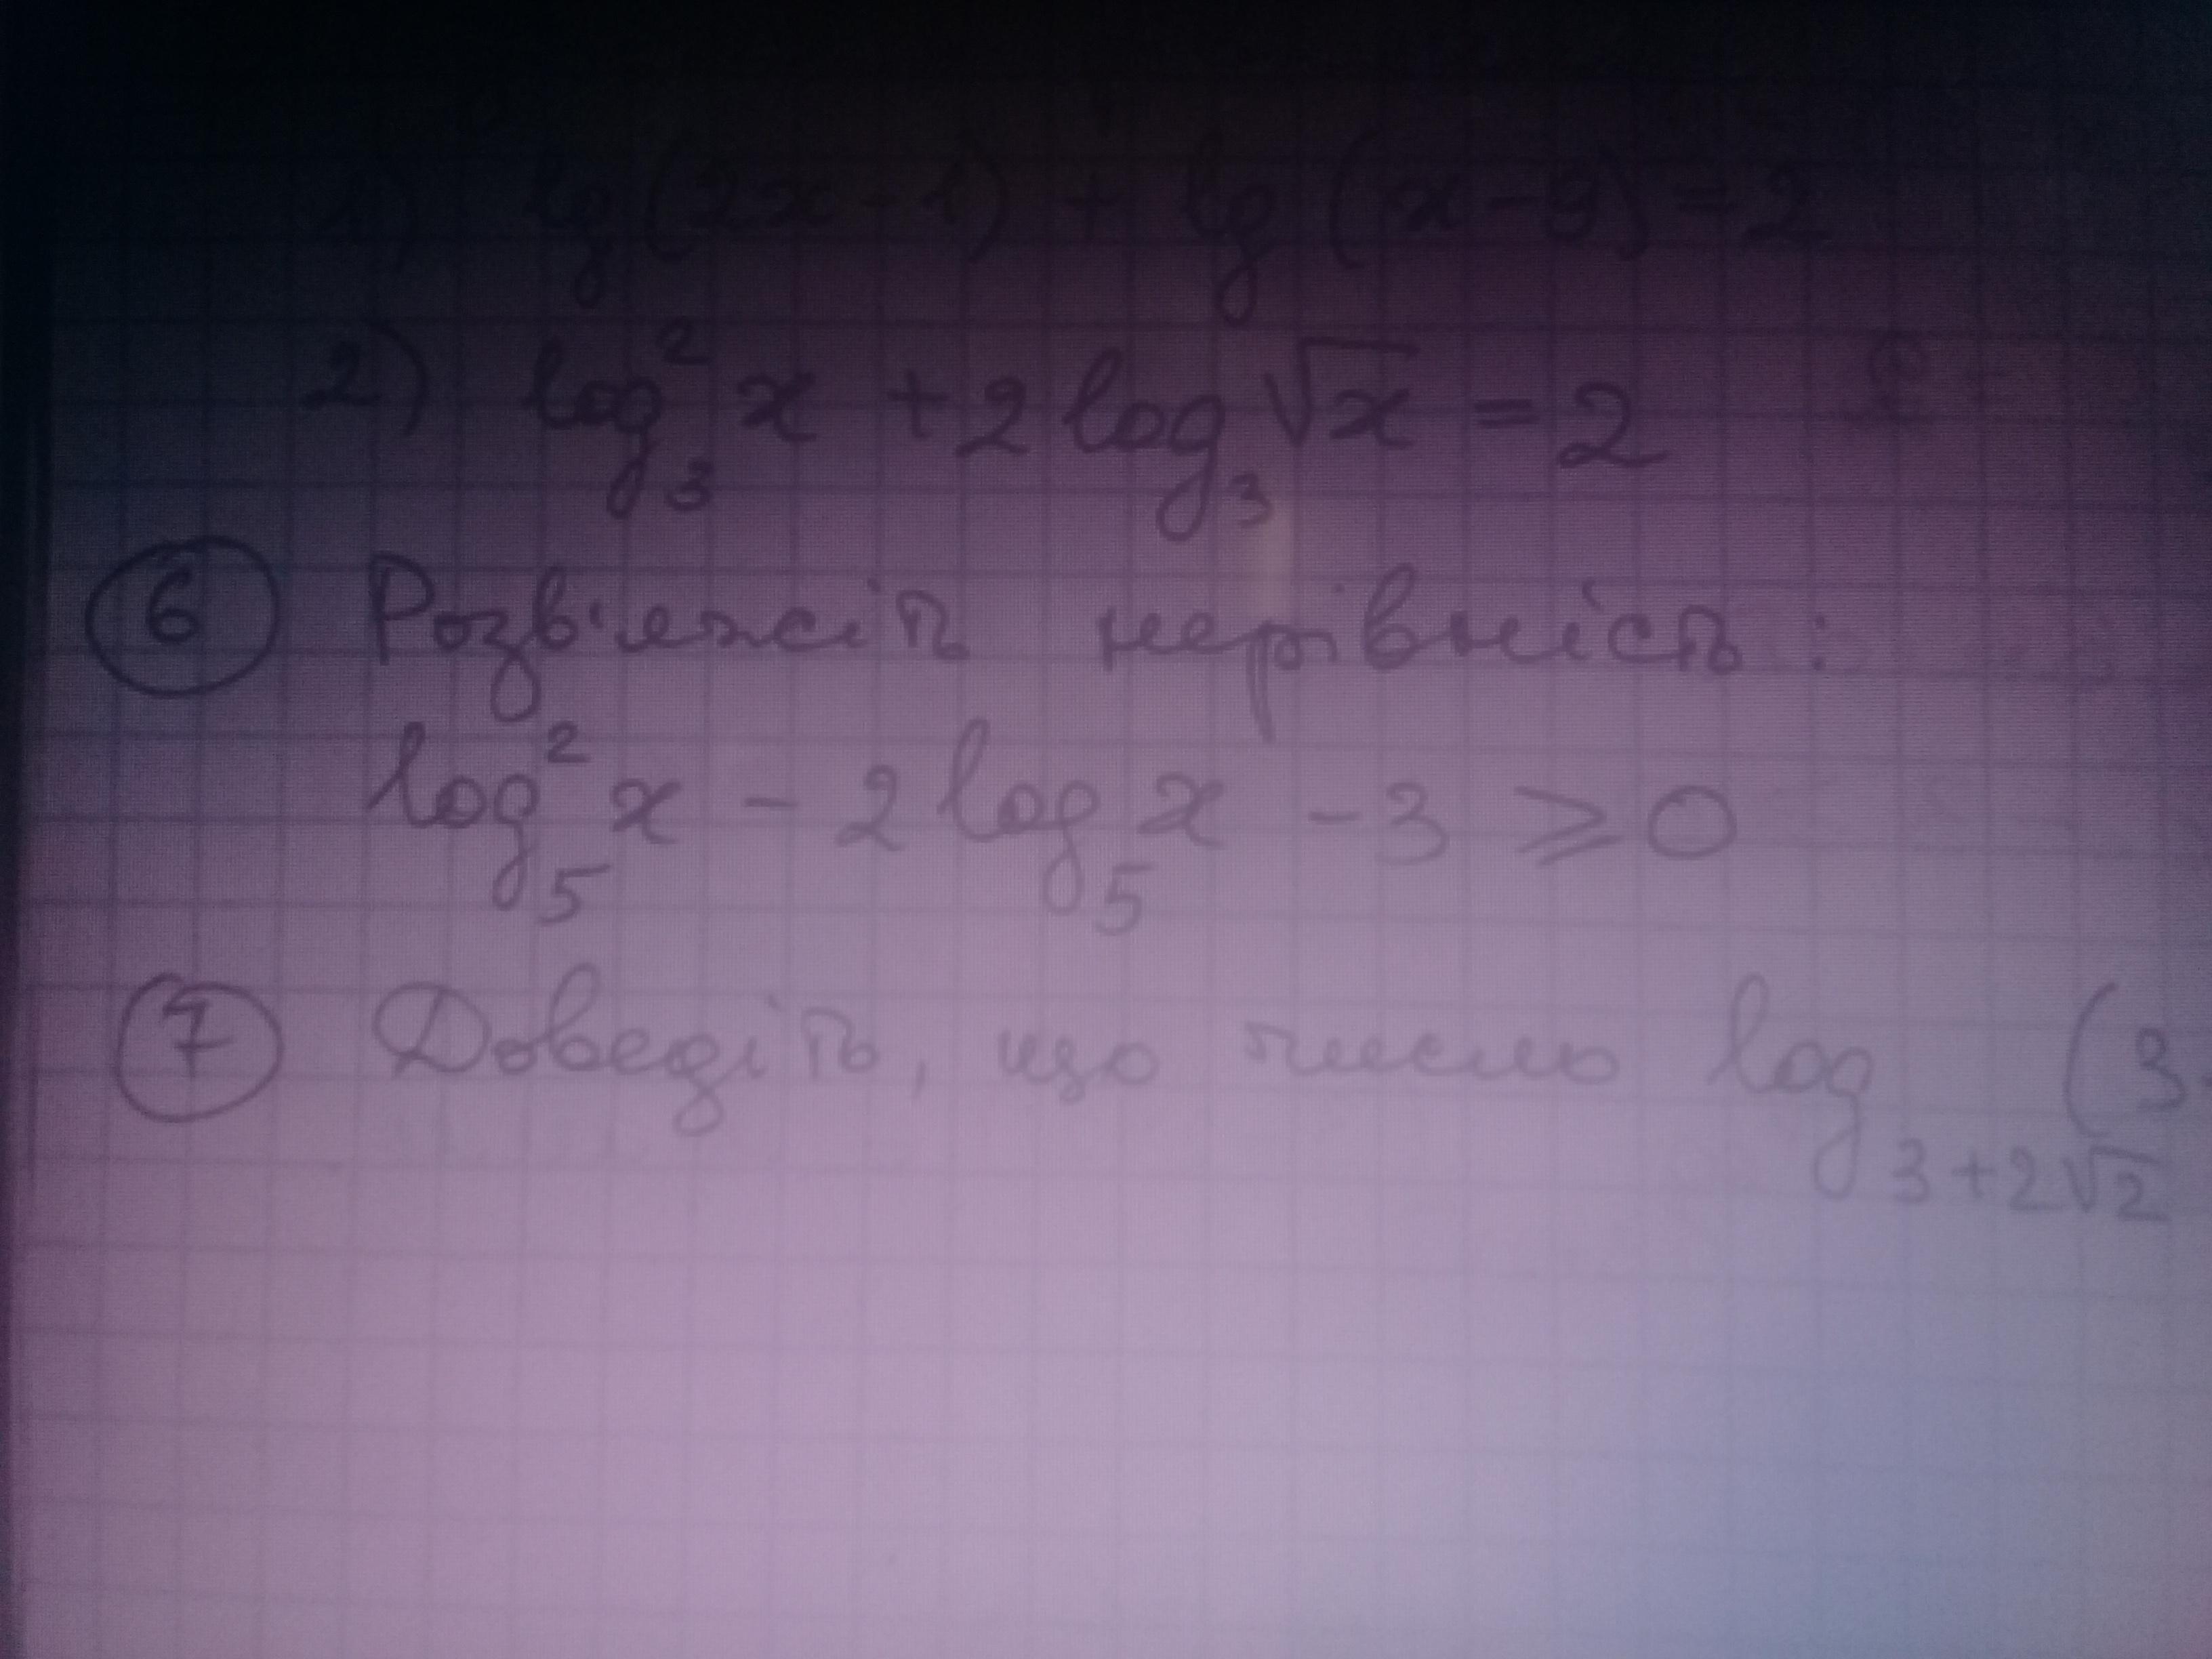 1) lg(2x-1) + lg(x-9) = 2
2) log₃²x + 2log₃√x = 2
6 Розв'яжіть нерівність:
log₅²x - 2log₅x - 3 ≥ 0
7 Доведіть, що число log₃₊₂√₂ (3